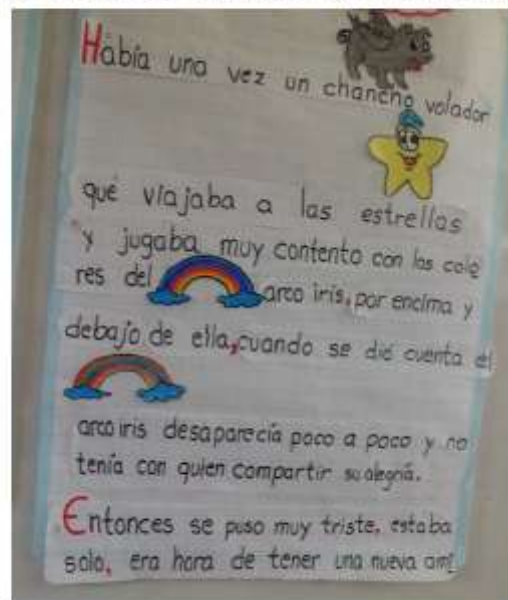 Había una vez un chancho volador
qué viajaba a las estrellas
y jugaba muy contento con los colo
res del arco iris, por encima y
debajo de ella, cuando se dió cuenta el
arcoiris desaparecía poco a poco y no
tenía con quien compartir su alegría.
Entonces se puso muy triste, estaba
solo, era hora de tener una nueva ami